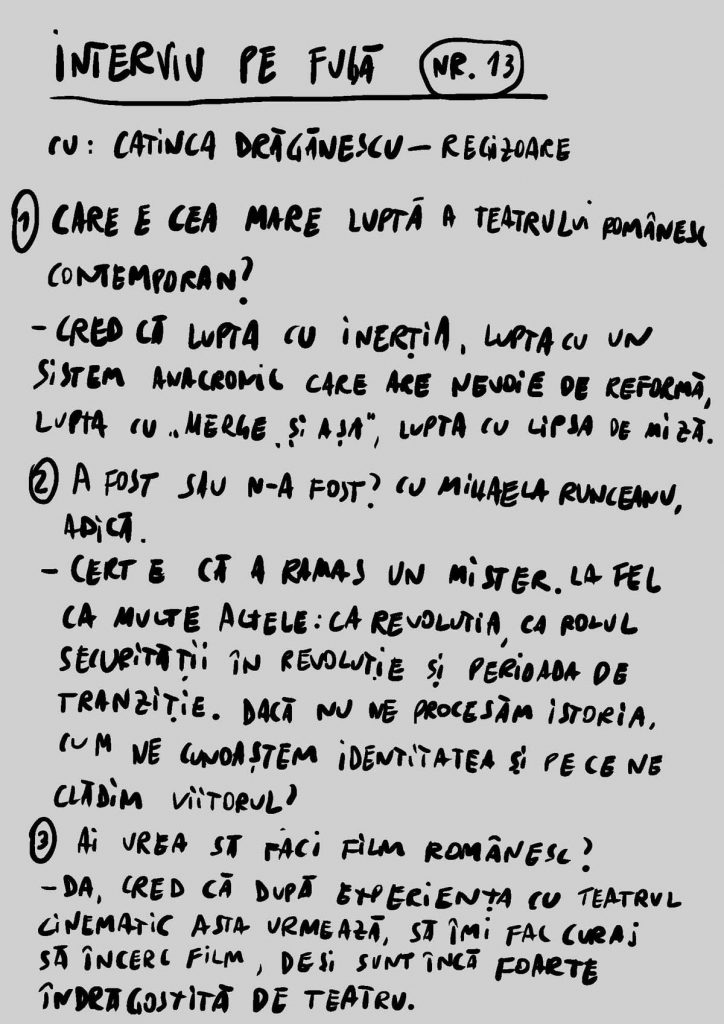 INTERVIU PE FUGĂ NR. 13
CU: CATINCA DRĂGĂNESCU – REGIZOARE
1 CARE E CEA MARE LUPTĂ A TEATRULUI ROMÂNESC
CONTEMPORAN?
– CRED CĂ LUPTA CU INERȚIA, LUPTA CU UN
SISTEM ANACRONIC CARE ARE NEVOIE DE REFORMĂ,
LUPTA CU „MERGE ȘI AȘA", LUPTA CU LIPSA DE MIZĂ.
2 A FOST SAU N-A FOST? CU MIHAELA RUNCEANU,
ADICĂ.
– CERT E CĂ A RAMAS UN MISTER. LA FEL
CA MULTE ALTELE: CA REVOLUTIA, CA ROLUL
SECURITĂȚII ÎN REVOLUȚIE ȘI PERIOADA DE
TRANZIȚIE. DACĂ NU NE PROCESĂM ISTORIA,
CUM NE CUNOAȘTEM IDENTITATEA ȘI PE CE NE
CLĂDIM VIITORUL?
3 AI VREA SĂ FACI FILM ROMÂNESC?
– DA, CRED CĂ DUPĂ EXPERIENȚA CU TEATRUL
CINEMATIC ASTA URMEAZĂ, SĂ ÎMI FAC CURAJ
SĂ ÎNCERC FILM, DESI SUNT ÎNCĂ FOARTE
ÎNDRĂGOSTITĂ DE TEATRU.